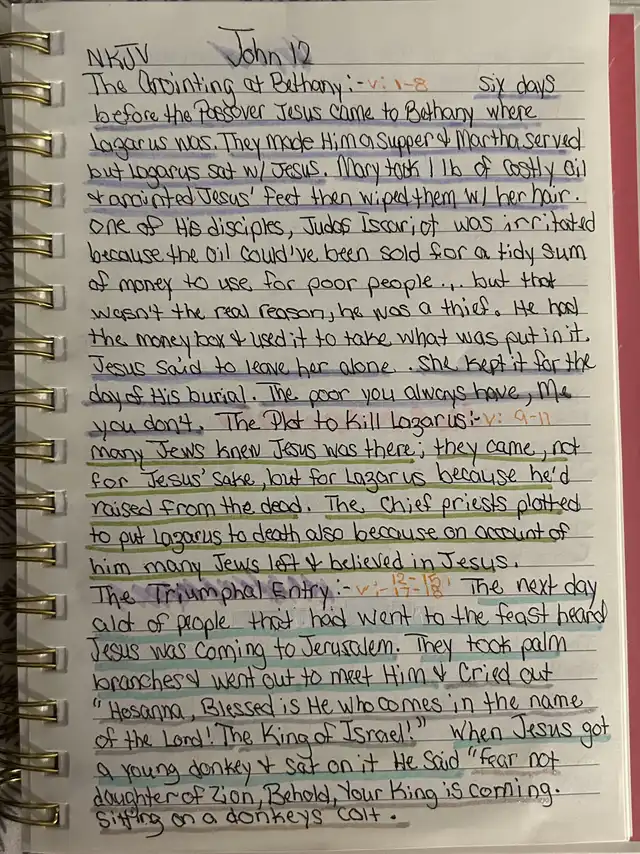 NKJV John 12
The Anointing at Bethany:- v: 1-8 Six days
before the Passover Jesus came to Bethany where
Lazarus was. They made Him a supper & Martha served
but Lazarus sat w/ Jesus. Mary took 1 lb of costly oil
& anointed Jesus' feet then wiped them w/ her hair.
One of His disciples, Judas Iscariot was irritated
because the oil could've been sold for a tidy sum
of money to use for poor people... but that
wasn't the real reason, he was a thief. He had
the moneybox & used it to take what was put in it.
Jesus said to leave her alone. She kept it for the
day of His burial. The poor you always have, Me
you don't. The Plot to Kill Lazarus:- v: 9-11
Many Jews knew Jesus was there; they came, not
for Jesus' sake, but for Lazarus because he'd
raised from the dead. The Chief priests plotted
to put Lazarus to death also because on account of
him many Jews left & believed in Jesus.
The Triumphal Entry:- v:- 12-15, 17-18 The next day
alot of people that had went to the feast heard
Jesus was coming to Jerusalem. They took palm
branches & went out to meet Him & Cried out
"Hosanna, Blessed is He who comes in the name
of the Lord! The King of Israel!" When Jesus got
a young donkey & sat on it He said "Fear not
daughter of Zion, Behold, Your King is coming.
Sitting on a donkeys colt.